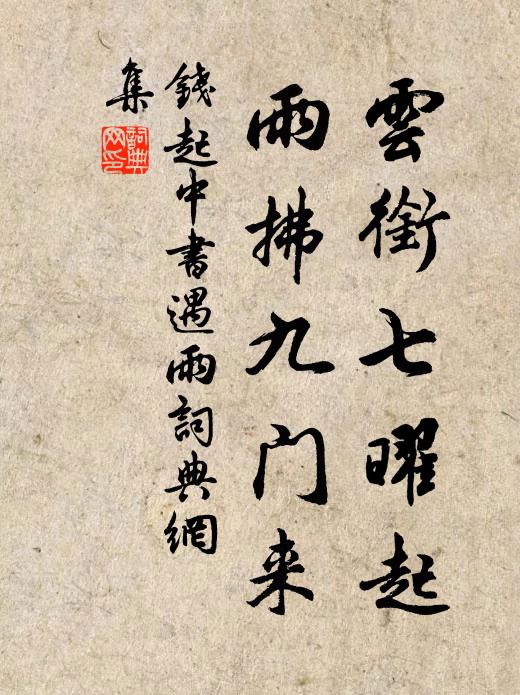 雲銜七曜起
雨拂九门来
錢起中書遇雨詞典網
集
詞典
网印